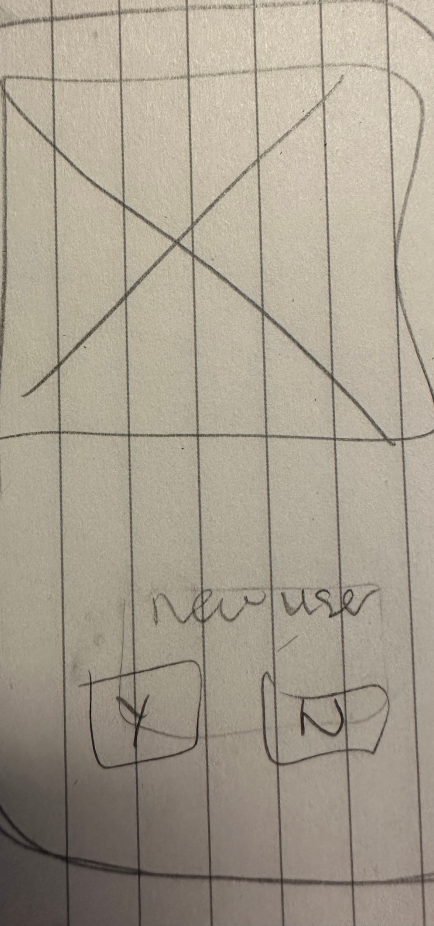 new user
Y N